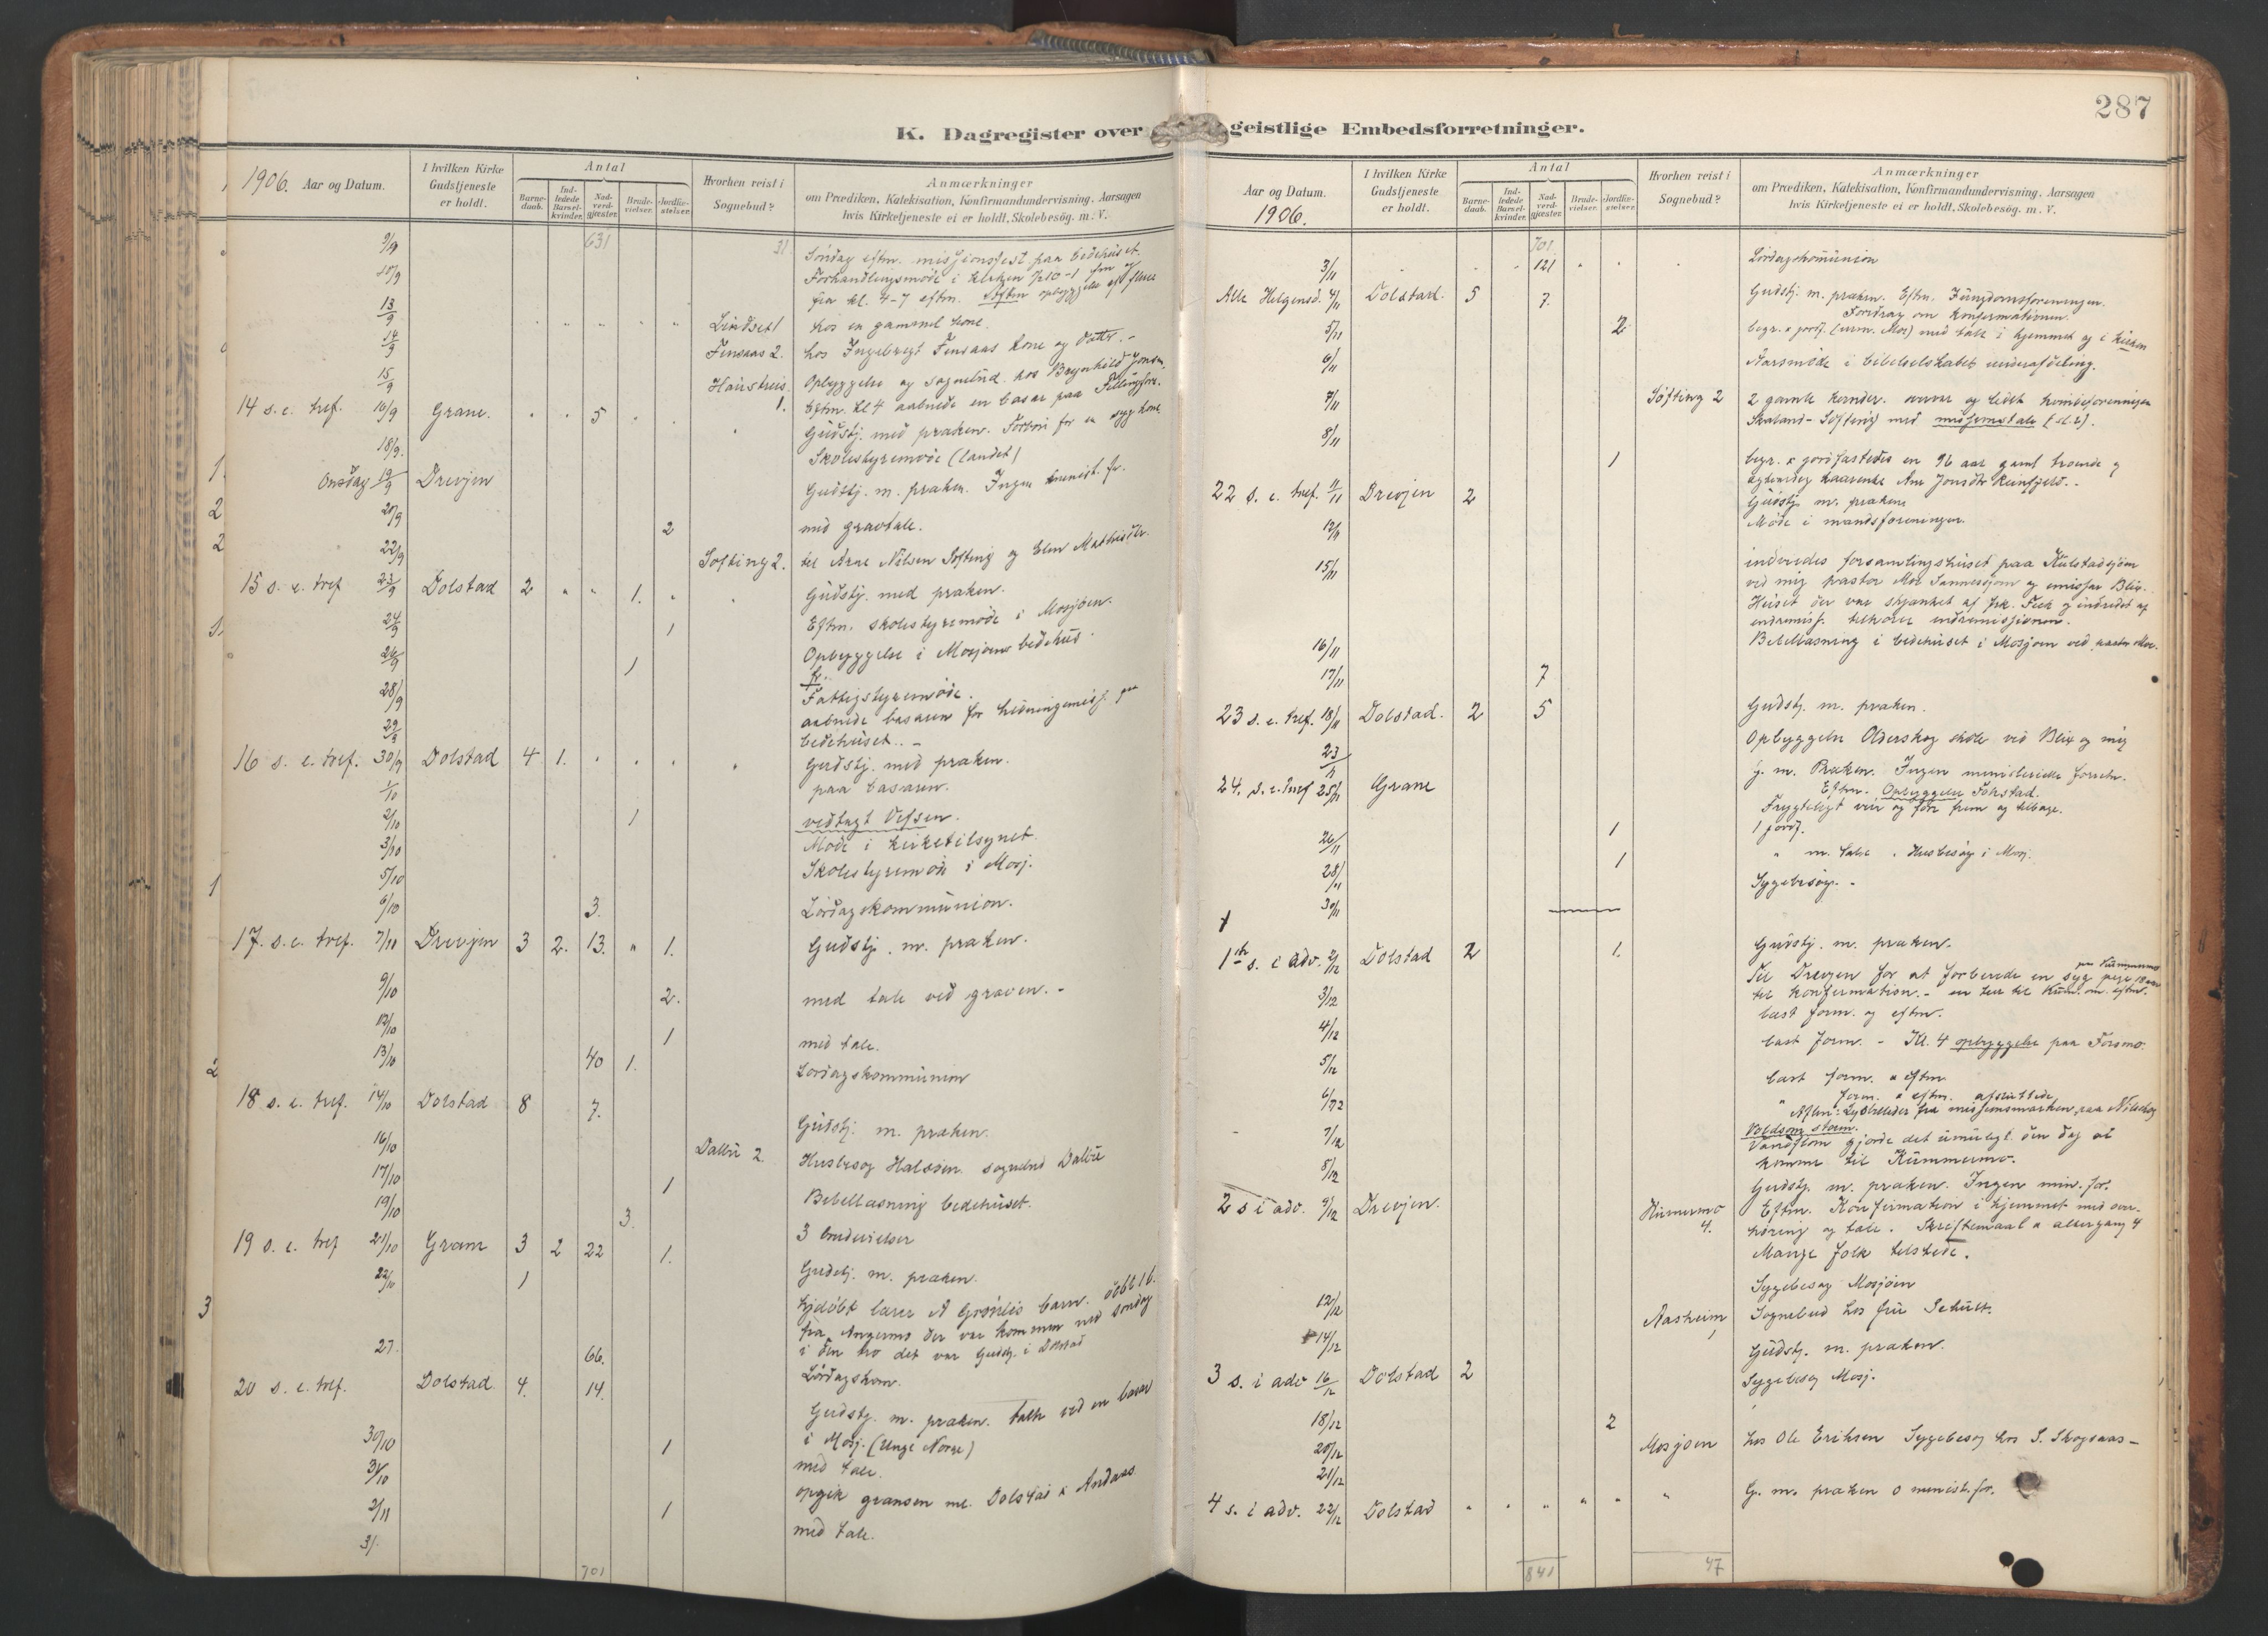 287
K. Dagregister over geistlige Embedsforretninger.
1906. Aar og Datum.
I hvilken Kirke Gudstjeneste er holdt.
Antal
Barnedaab.
Indledede Barselkvinder.
Nadverdgjæster.
Brudevielser.
Jordfæstelser.
Hvorhen reist i Sognebud?
Anmærkninger
om Prædiken, Katekisation, Konfirmandundervisning, Aarsagen
hvis Kirketjeneste ei er holdt, Skolebesøg. m. V.
9/9 631 31 Söndag eftm. missjonsfest paa bedehuset.
10/9 Forhandlingsmöde i kirken
fra kl. 4-7 eftm. opbyggelse
13/9 Lindset 1 hos en gammel kone.
14/9 Finsaas 2. hos Ingebregt Finsaas kone og datter. -
15/9 Opbyggelse og sognebud hos Brynhild
1. Eftm. kl 4 aabnede en basar paa
14 s. e. tref. 16/9 Grane. " " 5 " " " Gudstj. med præken. Forbön for en syg kone
18/9. Skolestyremöde (landet)
Onsdag 19/9 Drevjen Gudstj. m. præken. Ingen minist. fr.
20/9 2 med gravtale.
22/9 Softing 2. til Arne Nilsen Softing og Elen
15 s. e. tref 23/9 Dolstad 2 " " 1. " " Gudstj. med præken.
Eftm. skolestyremöde i Mosjöen.
24/9 1 Opbyggelse i Mosjöens bedehus.
26/9 1
28/9 Fattigstyremöde.
29/9 aabnede basaren for hedningemisj. paa
bedehuset. -
16 s. e. tref. 30/9 Dolstad 4 1. " " " " Gudstj. med præken.
1/10 paa basaren.
2/10 1 vedtagt Vefsen.
3/10 Möde i kirketilsynet.
5/10 Skolestyremöde i Mosj.
6/10 3. Lördagskommunion.
17. s. e. tref. 7/10 Drevjen 3 2. 13. " 1. Gudstj. m. præken.
9/10 2. med tale ved graven. -
12/10 1 med tale.
13/10 40 1. Lördagskommunion
18 s. e. tref. 14/10 Dolstad 8 7. Gudstj. m. præken.
16/10 Dalbu 2. Husbesög Halsöen. sognebud Dalbu
17/10 1 Bibellæsning bedehuset.
19/10 3. 3 brudevielser
19 s. e. tref 21/10 Grane 3 2 22 1. Gudstj. m. præken.
22/10 1 hjdöbt lærer A Grönlis barn. döbt 16.
fra Angermo der var kommen ned söndag
i den tro det var Gudstj. i Dolstad
27. 66. Lördagskom.
20 s. e. tref. Dolstad 4. 14. Gudstj. m. præken. talte ved en basar
i Mosj. (Unge Norge)
30/10 1 med tale.
31/10 opgik grænsen ml. Dolstad & Andaas.
2/11 1 med tale.
31.
701
Aar og Datum. 1906.
I hvilken Kirke Gudstjeneste er holdt.
Antal
Barnedaab.
Indledede Barselkvinder.
Nadverdgjæster.
Brudevielser.
Jordfæstelser.
Hvorhen reist i Sognebud?
Anmærkninger
om Prædiken, Katekisation, Konfirmandundervisning, Aarsagen
hvis Kirketjeneste ei er holdt, Skolebesøg. m. V.
701.
3/11 " " " 121 " " " Lördagskommunion
Alle Helgensd. 4/11 Dolstad. 5 7. Gudstj. m. præken. Eftm. Ungdomsforeningen.
Foredrag om konfirmationen.
5/11 2 begr. & jordf. med tale i hjemmet og i kirken
6/11 Aarsmöde i bibelselskabets underafdeling.
7/11 Söfting 2 2 gamle kvinder.
Skaland - Söfting) med missjonstale
8/11 1 begr. & jordfæstedes en 96 aar gaml troende
22 s. e. tref. 11/11 Drevjen 2 Gudstj. m. præken
12/11 Möde i mandsforeningen.
15/11 indviedes forsamlingshuset paa Kulstadsjöen
ved mig pastor Moe Sannessjöen og emissær Blix.
Huset der var skjænket af frk. og indredet af
indremisj. tilhörer indremissjonen.
16/11 Bibellæsning i bedehuset i Mosjöen ved pastor Moe.
17/11 7
23 s. e. tref. 18/11 Dolstad. 2 5 Gudstj. m. præken.
23/11 Opbyggelse Olderskog skole ved Blix og mig
24. s. e. tref 25/11 Grane G. m. Præken. Ingen ministerielle forretn.
Eftm. Opbyggelse
Frygteligt veir og före frem og tilbage.
26/11 1 1 jordf.
28/11 1 " m. tale. Husbesög i Mosj.
30/11 Sygebesög. -
1ste s. i adv. 2/12 Dolstad 2 1. Gudstj. m. præken.
3/12 Til Drevjen for at forberede en syg pige
til konfirmation. -
læst form. og eftm.
4/12 læst form. - Kl. 4 opbyggelse paa Forsmo.
5/12 læst form. & eftm
6/12 " form. & eftm. afsluttede
Aften: Lysbilleder fra missjonsmarken
7/12 Voldsom storm.
Vandflom gjorde det umuligt den dag at
8/12 komme til Kummermo.
2 s i adv. 9/12 Drevjen. Gudstj. m. præken. Ingen min. for.
Kummermo 4. Eftm. Konfirmation i hjemmet med over-
höring og tale. Skriftemaal & altergang 4
Mange folk tilstede.
12/12 Sygebesög Mosjöen
14/12 Aasheim 1 Sognebud hos fru Schult.
3 s. i adv 16/12 Dolstad 2 Gudstj. m. præken.
18/12 2 Sygebesög Mosj.
20/12 Mosjöen hos Ole Eriksen Sygebesög hos S. Skogsaas -
21/12
4 s. i adv. 22/12 Dolstad " " " " " " G. m. præken 0 minist. for.
841 47